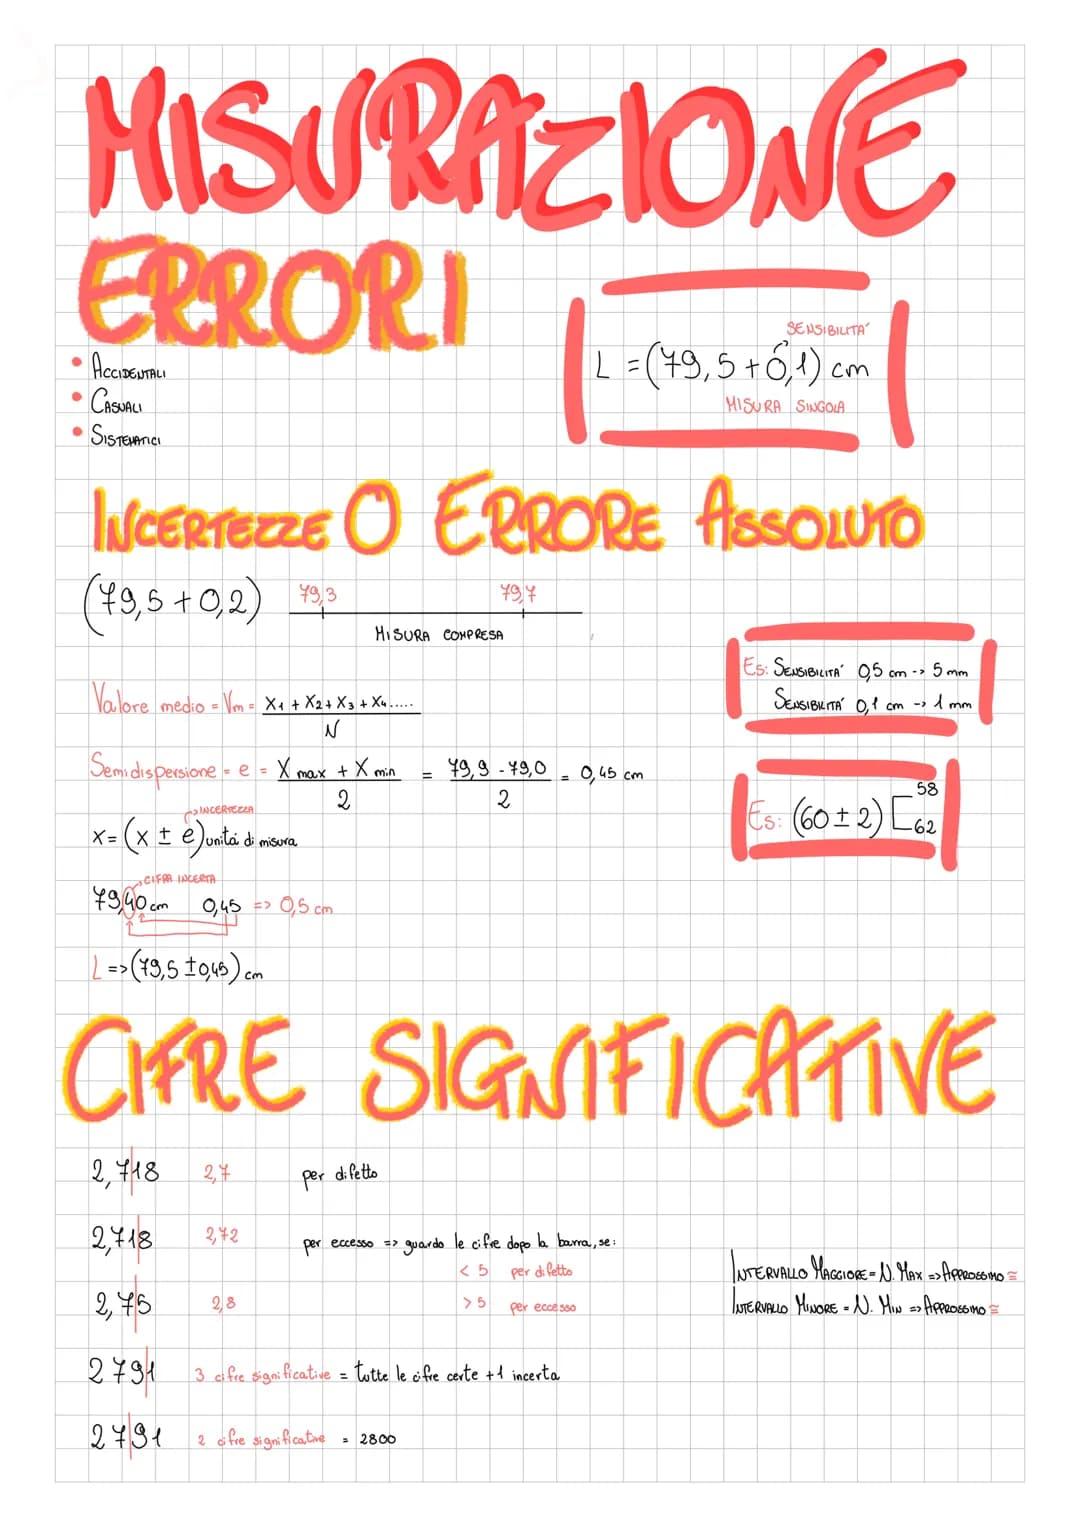 MISURAZIONE
ERRORI
• ACCIDENTALI
• CASUALI
• SISTEMATICI
SENSIBILITA'
L = (79,5 + 0,1) cm
MISURA SINGOLA
INCERTEZZE O ERRORE ASSOLUTO
(79,5 + 0,2)
79,3 79,7
MISURA COMPRESA
Es: SENSIBILITA' 0,5 cm -> 5 mm
SENSIBILITA' 0,1 cm -> 1 mm
Valore medio = Vm = X1 + X2 + X3 + X4..... / N
Semidispersione = e = X max + X min / 2 = 79,9 - 79,0 / 2 = 0,45 cm
Es: (60 ± 2) [58 62
INCERTEZZA
X = (x ± e) unitá di misura
CIFRA INCERTA
79,40 cm 0,45 => 0,5 cm
L => (79,5 ± 0,45) cm
CIFRE SIGNIFICATIVE
2,7|18 2,7 per difetto
2,71|8 2,72 per eccesso => guardo le cifre dopo la barra, se:
< 5 per difetto
2,7|5 2,8 > 5 per eccesso
INTERVALLO MAGGIORE = N. MAX => APPROSSIMO ≅
INTERVALLO MINORE = N. MIN => APPROSSIMO ≅
279|1 3 cifre significative = tutte le cifre certe + 1 incerta
27|91 2 cifre significative = 2800